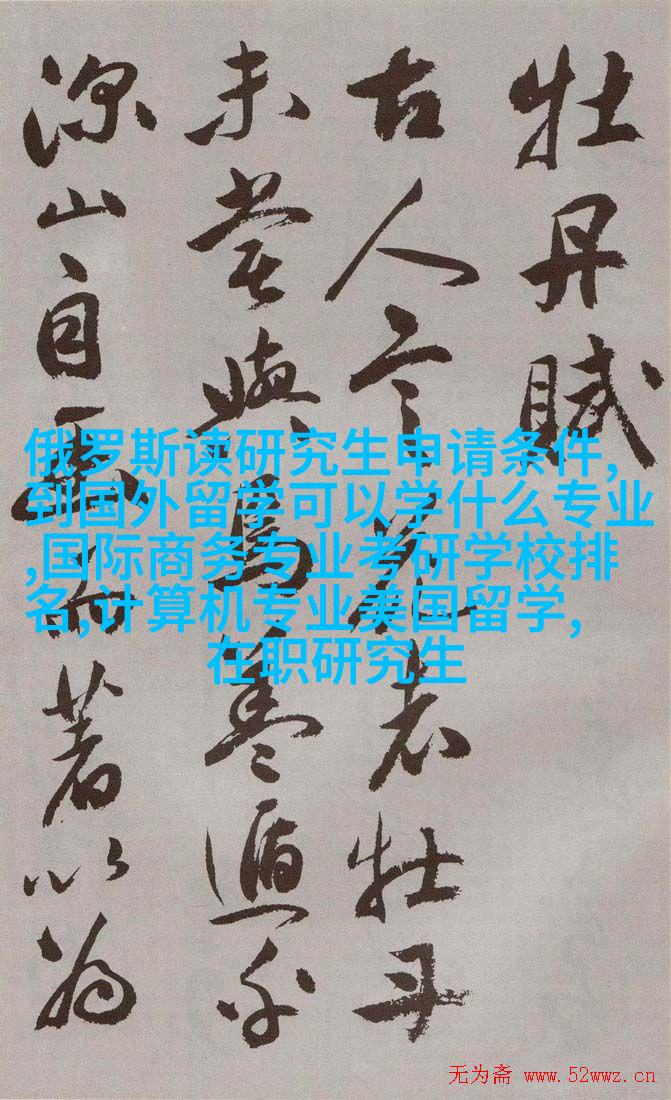 牡丹賦
古人言花者牡丹
未嘗與焉蓋遁乎
深山自幽而著以為
俄罗斯读研究生申请条件,
到国外留学可以学什么专业
,国际商务专业考研学校排
名,计算机专业美国留学,
在职研究生
无为斋 www.52wwz.cn